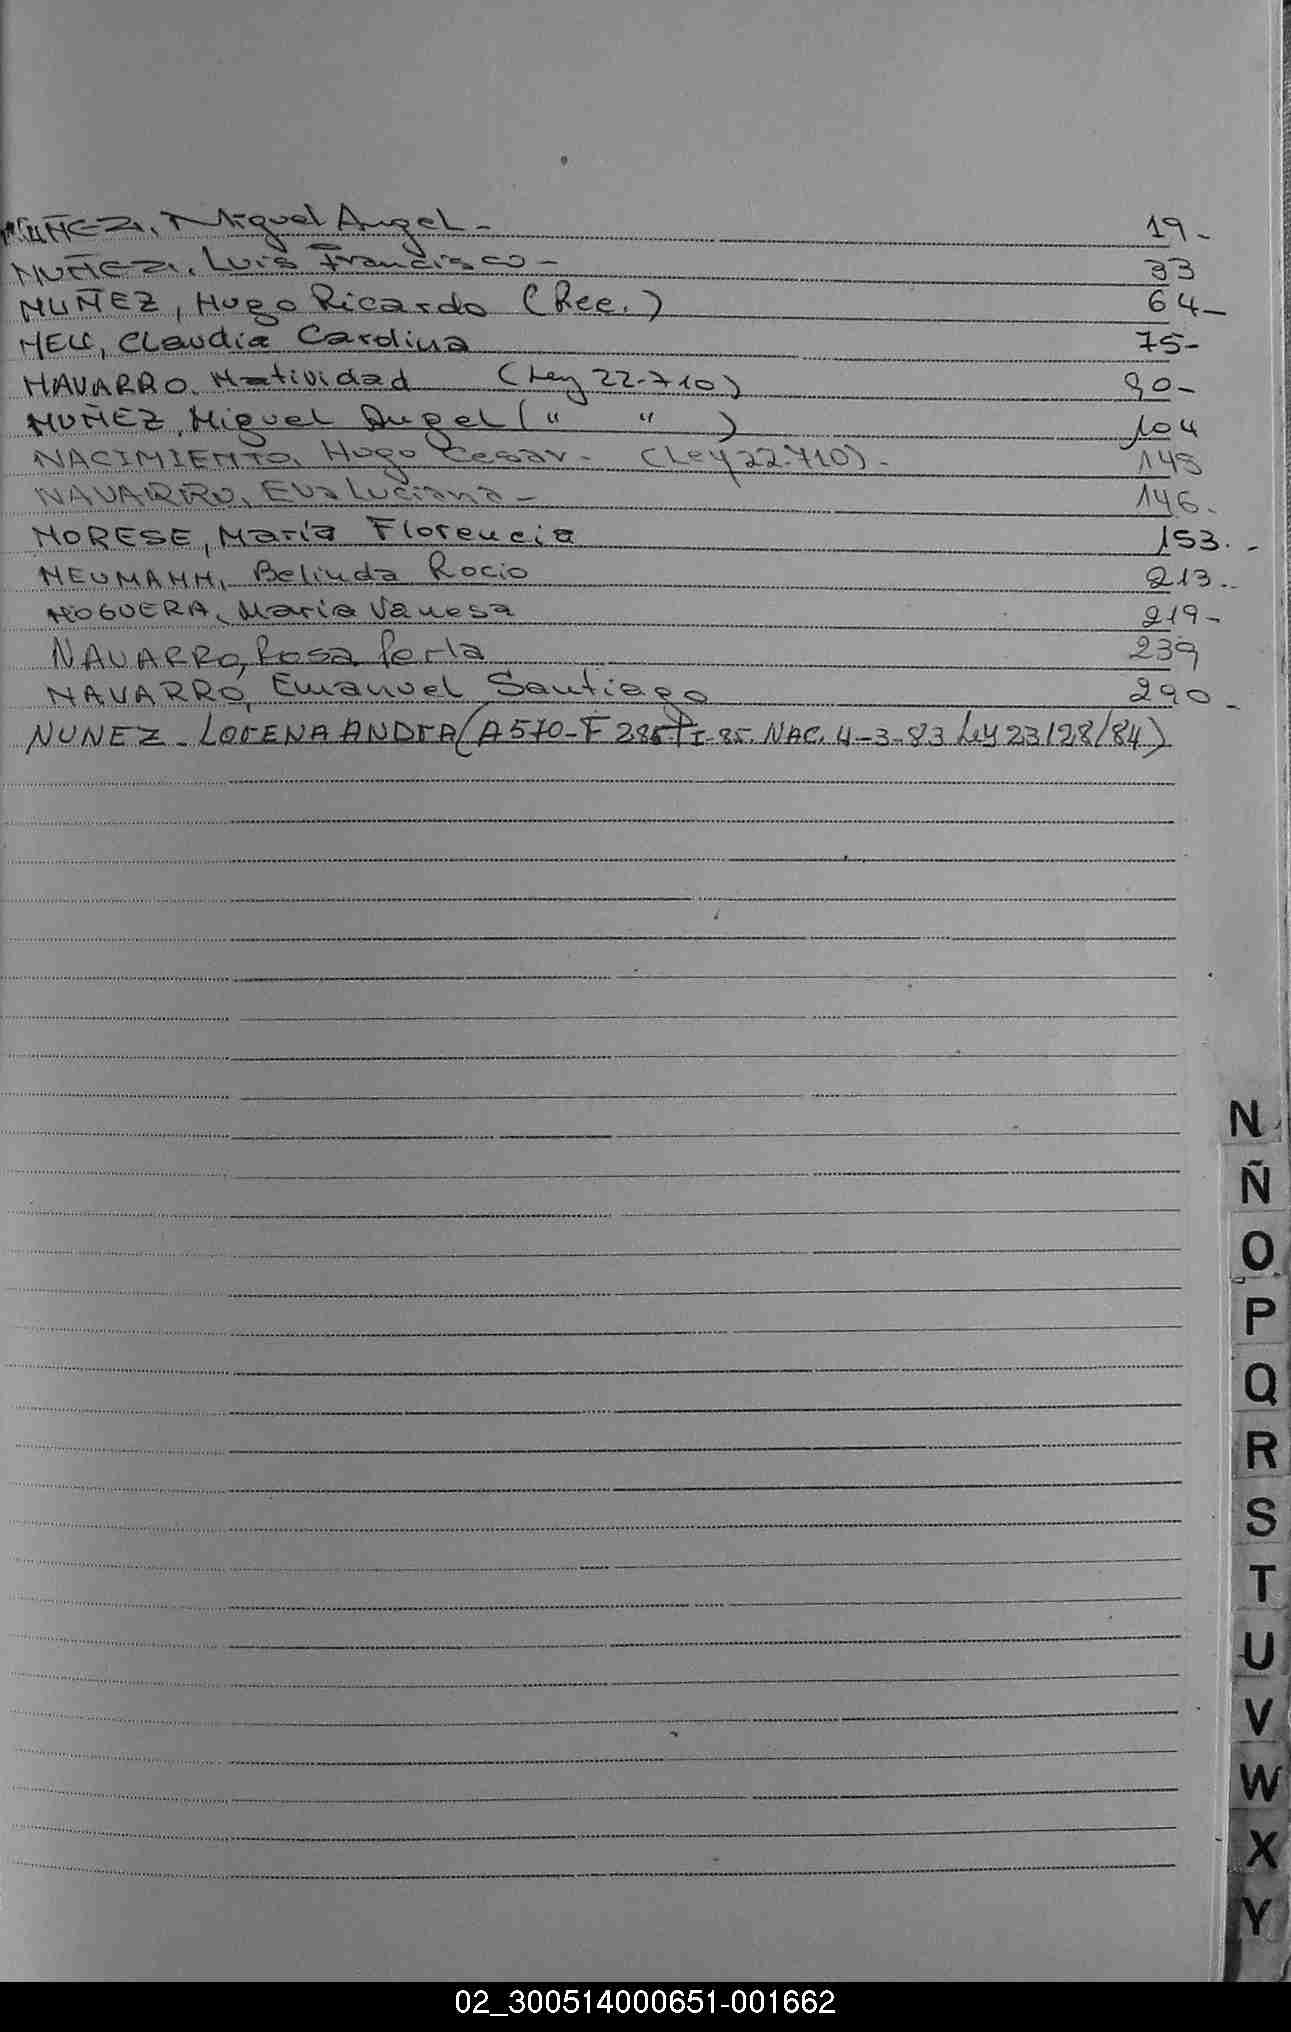 NUÑEZ, Miguel Angel - 19-
NUÑEZ, Luis Francisco - 33
NUÑEZ, Hugo Ricardo (Rec.) 64-
Claudia Carolina 75-
NAVARRO, Natividad (Ley 22.710) 90-
NUÑEZ, Miguel Angel ( " " ) 104
NACIMIENTO, Hugo Cesar - (Ley 22.710) - 145
NAVARRO, Eva Luciana - 146.
NORESE, María Florencia 153. -
NEUMANN, Belinda Rocio 213..
NOGUERA, María Vanesa 219-
NAVARRO, Rosa Perla 239
NAVARRO, Emanuel Santiago 290 -
NUNEZ - LORENA ANDREA (A 570 - F 286 85. NAC. 4-3-83 Ley 23128/84)
N
Ñ
O
P
Q
R
S
T
U
V
W
X
Y
02_300514000651-001662